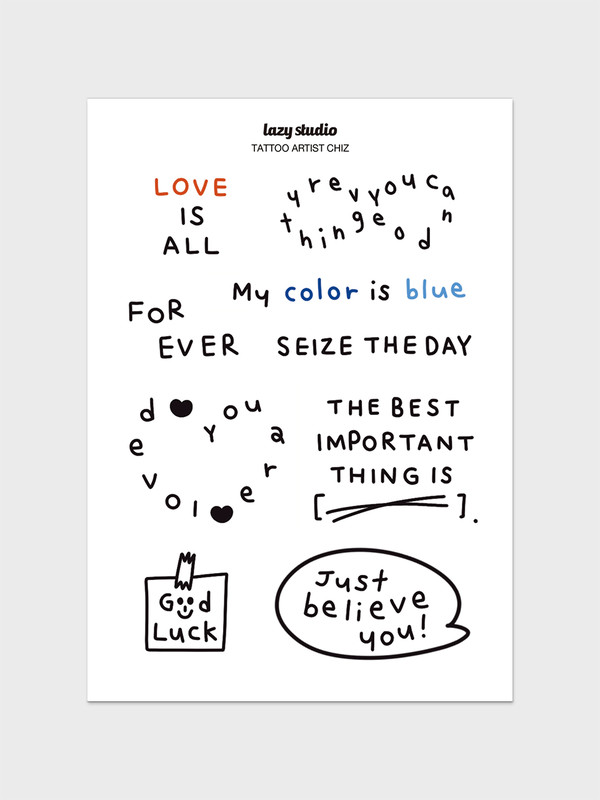 lazy studio
TATTOO ARTIST CHIZ
LOVE
IS
ALL
you can do everything
My color is blue
FOR
EVER
SEIZE THE DAY
you are loved
THE BEST
IMPORTANT
THING IS
[ ].
Good
Luck
Just
believe
you!